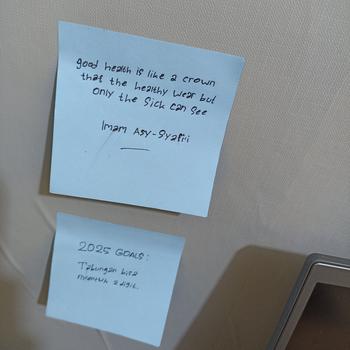 good health is like a crown
that the healthy wear but
only the sick can see
Imam Asy-Syafi'i
2025 GOALS:
Tabungan bisa
digit.